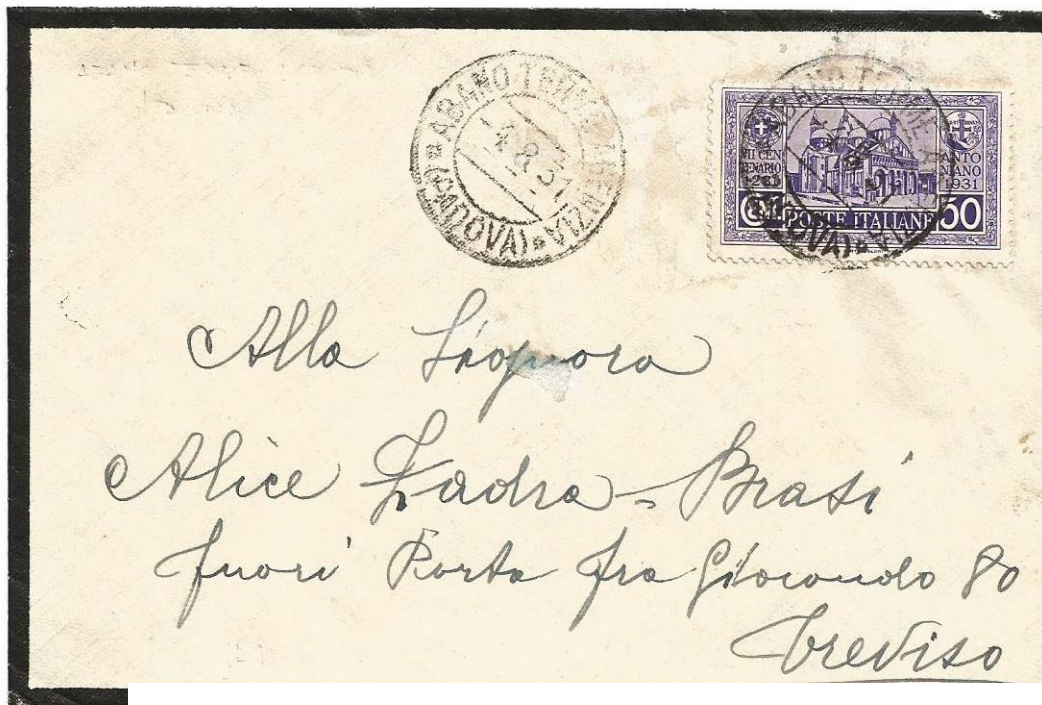 ABANO TERME
4.8.31
(PADOVA)
ABANO TERME
(PADOVA)
VII CEN
TENARIO
1231
SANTO
1931
POSTE ITALIANE
50
Alla Signora
Alice Zadra-Brasi
fuori Porta fra Giocondo 80
Treviso